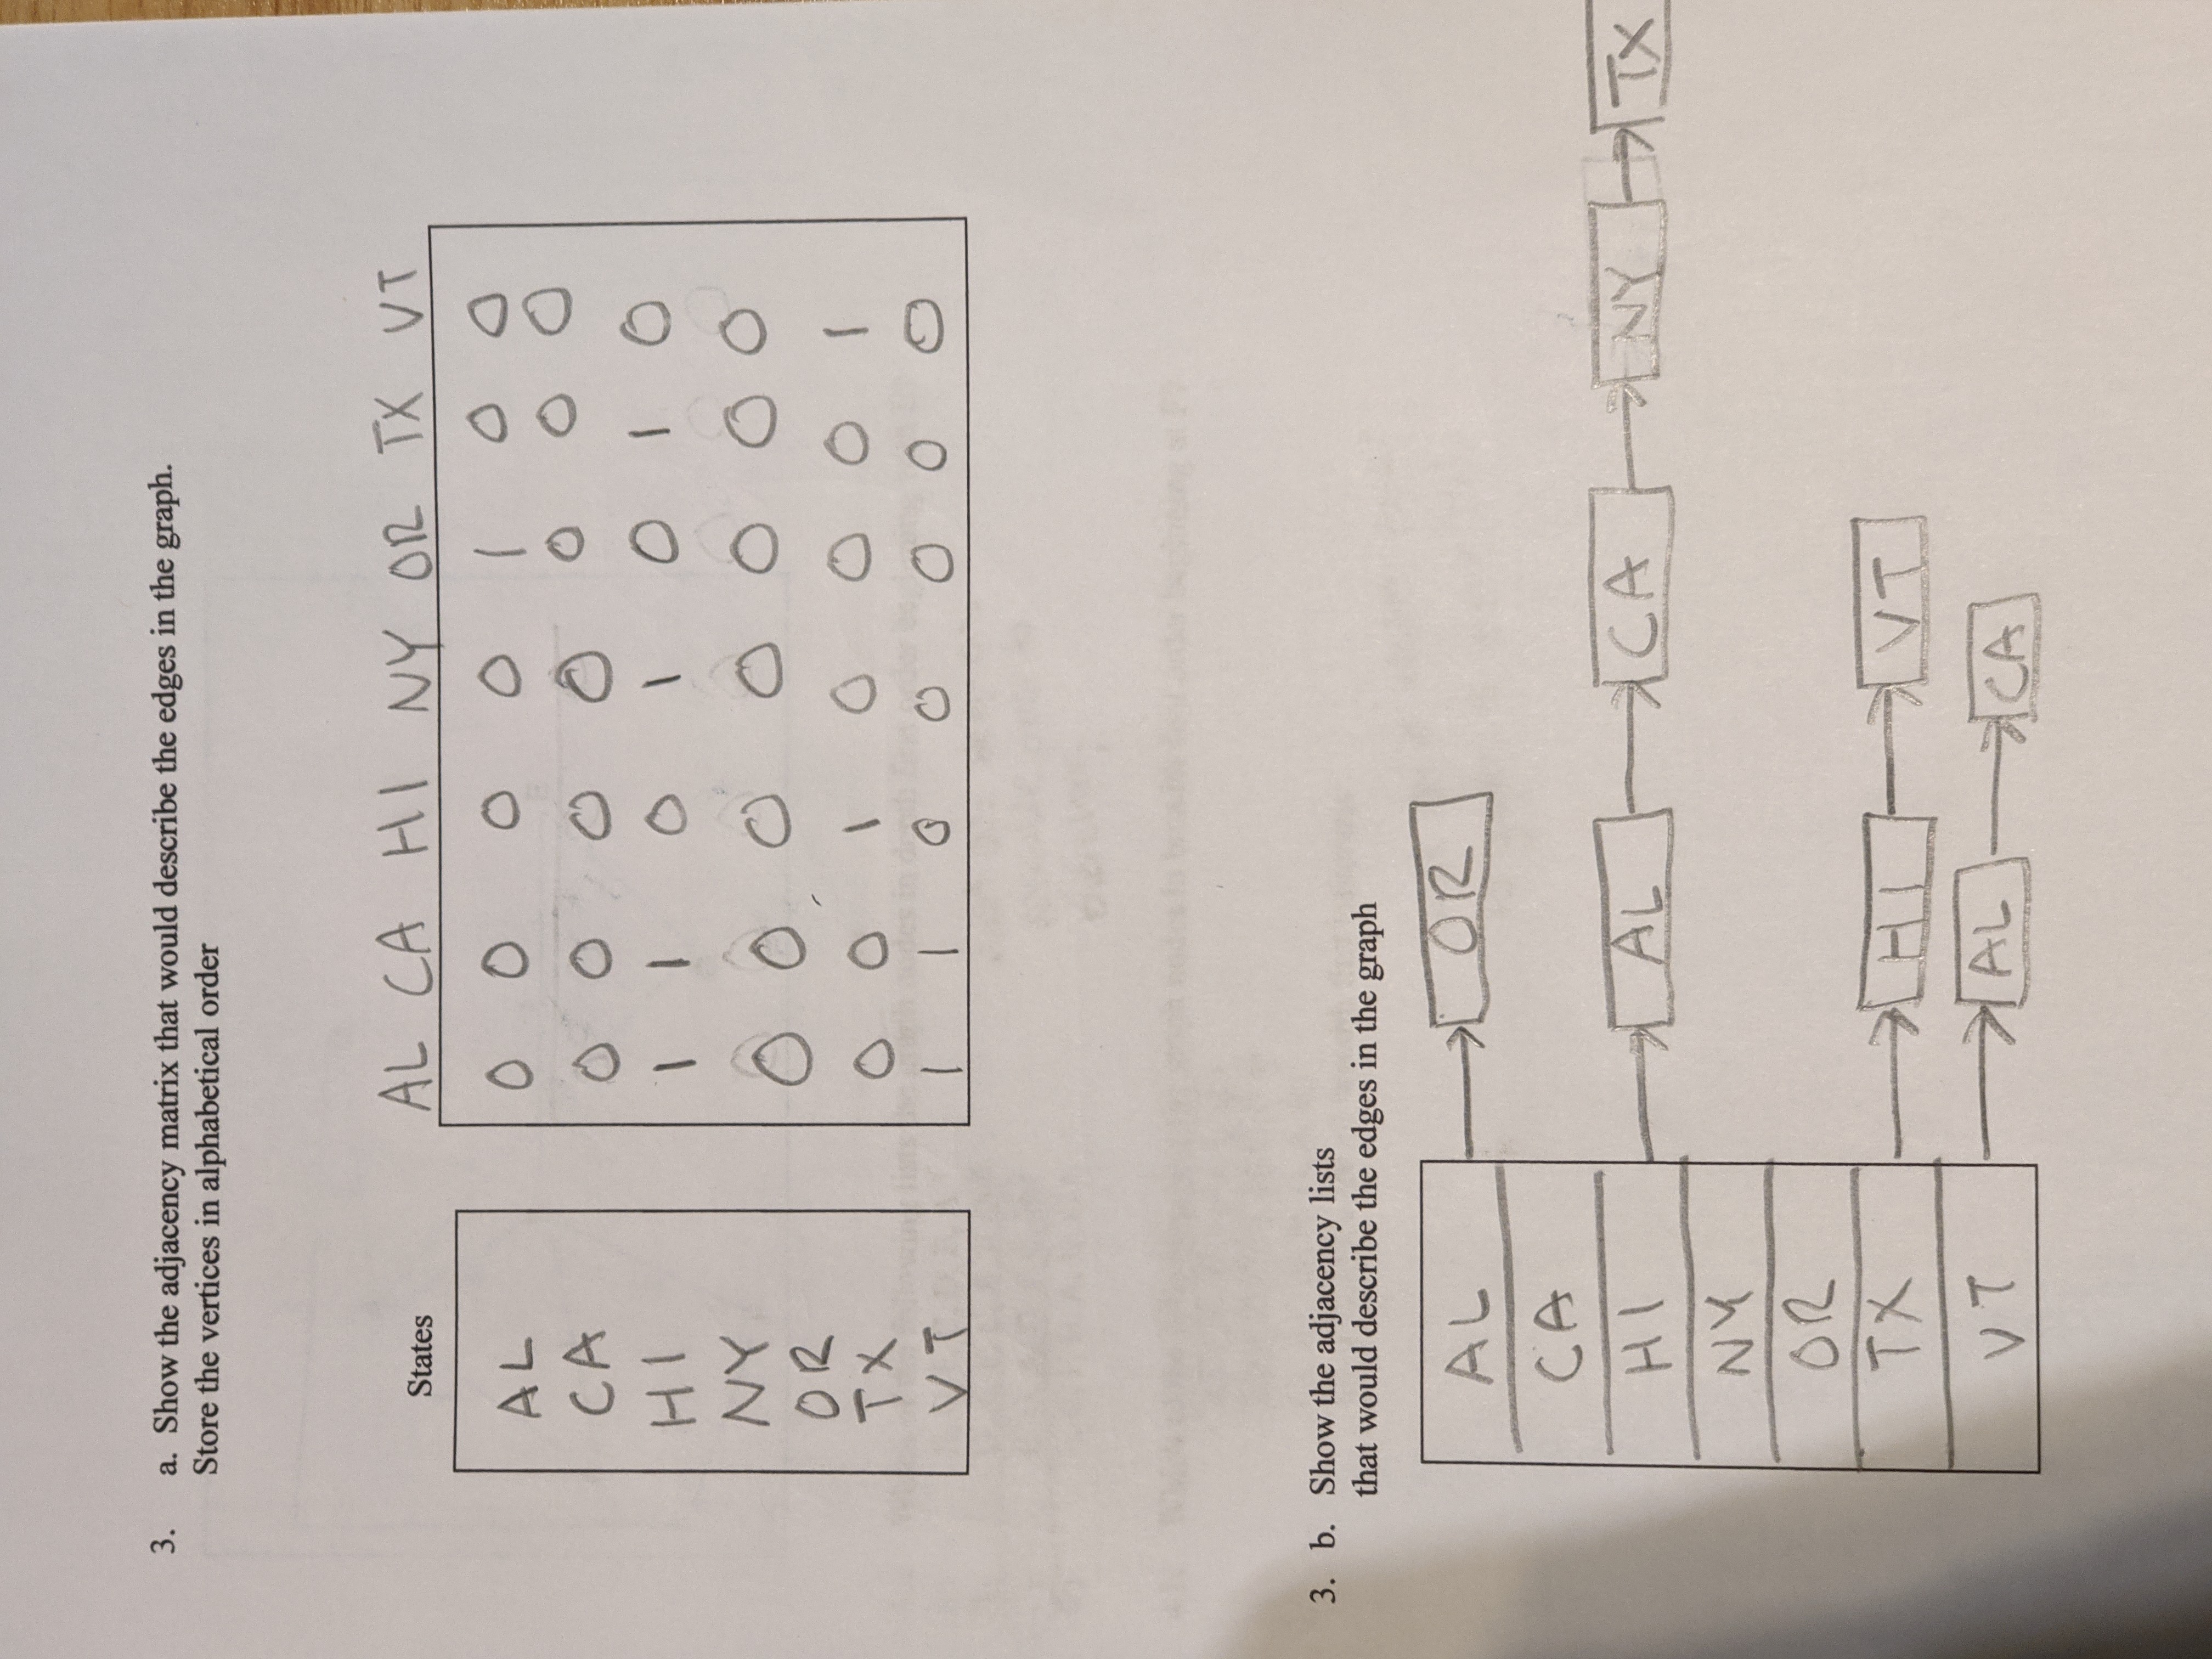 3. a. Show the adjacency matrix that would describe the edges in the graph.
Store the vertices in alphabetical order
States AL CA HI NY OR TX VT
AL 0 0 0 0 1 0 0
CA 0 0 0 0 0 0 0
HI 1 1 0 1 0 1 0
NY 0 0 0 0 0 0 0
OR
TX 0 0 1 0 0 0 1
VT 1 1 0 0 0 0 0
3. b. Show the adjacency lists
that would describe the edges in the graph
AL OR
CA
HI AL CA NY TX
NY
OR
TX HI VT
VT AL CA